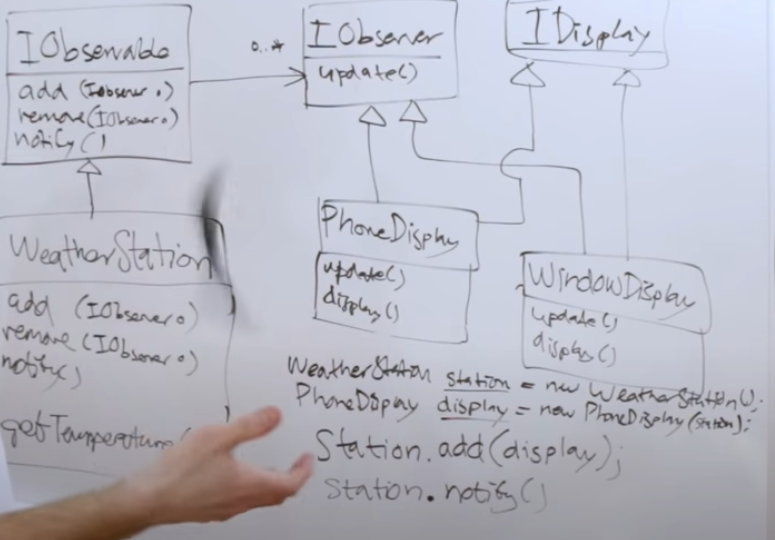 IObservable
add (IObserver o)
remove (IObserver o)
notify ()
0..*
IObserver
update()
IDisplay
WeatherStation
add (IObserver o)
remove (IObserver o)
notify()
getTemperature(
PhoneDisplay
update()
display()
WindowDisplay
update()
display()
WeatherStation station = new WeatherStation();
PhoneDisplay display = new PhoneDisplay(station);
Station.add(display);
Station.notify()